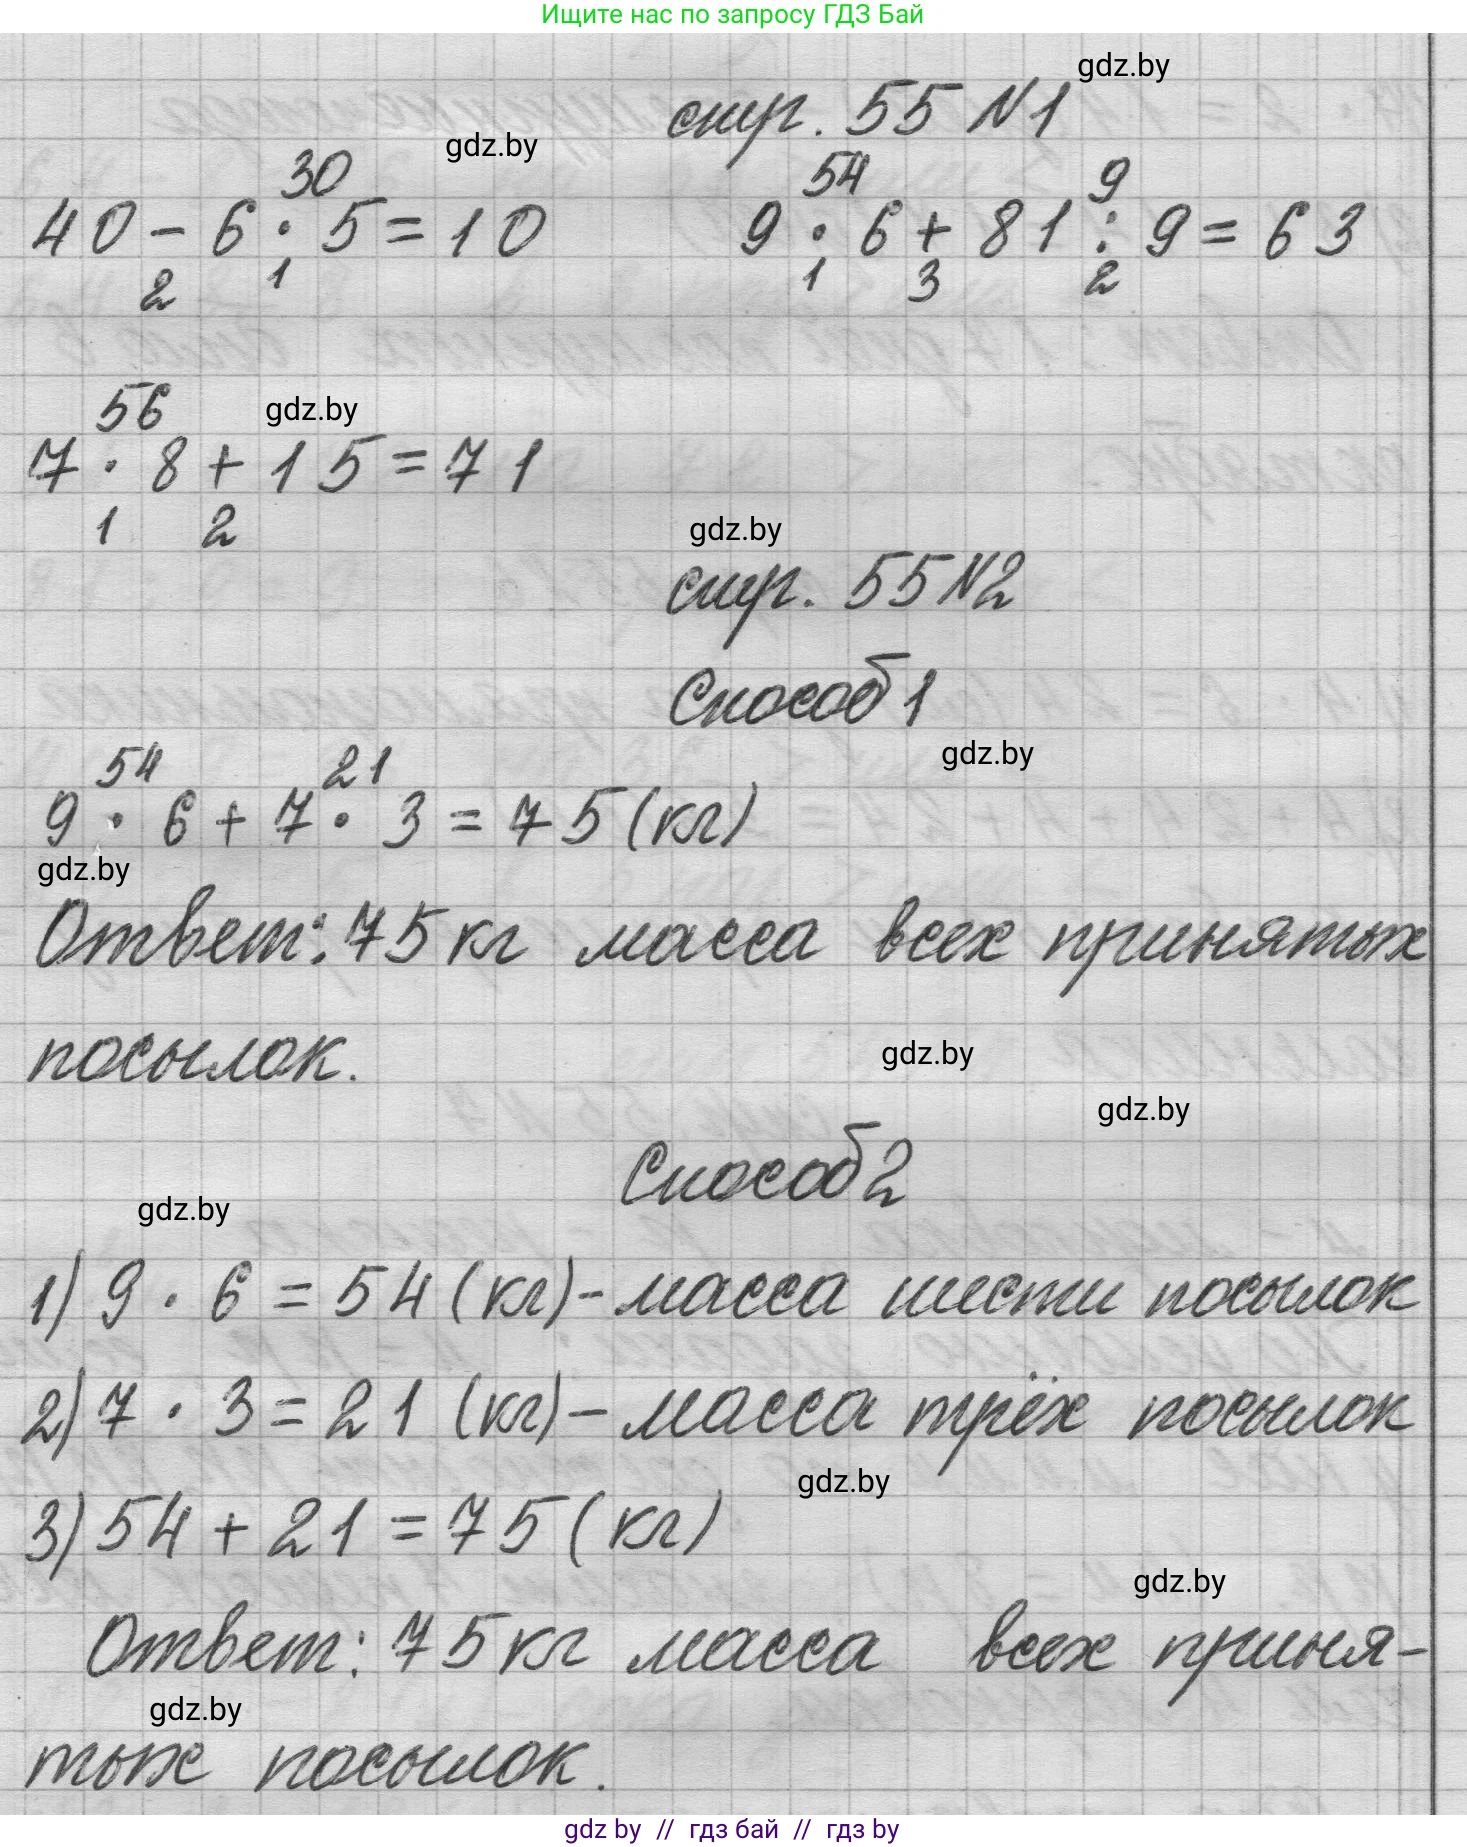 Ищите нас по запросу ГДЗ Бай
gdz.by
стр. 55 №1
gdz.by
30 54 9
40 - 6 · 5 = 10 9 · 6 + 81 : 9 = 63
2 1 1 3 2
56 gdz.by
7 · 8 + 15 = 71
1 2
gdz.by
стр. 55 №2
Способ 1
gdz.by
54 21
9 · 6 + 7 · 3 = 75 (кг)
gdz.by
Ответ: 75 кг масса всех принятых
посылок.
gdz.by
gdz.by
Способ 2
gdz.by
1) 9 · 6 = 54 (кг) - масса шести посылок
2) 7 · 3 = 21 (кг) - масса трёх посылок
gdz.by
3) 54 + 21 = 75 (кг)
gdz.by
Ответ: 75 кг масса всех приня-
gdz.by
тых посылок.
gdz by // гдз бай // гдз by